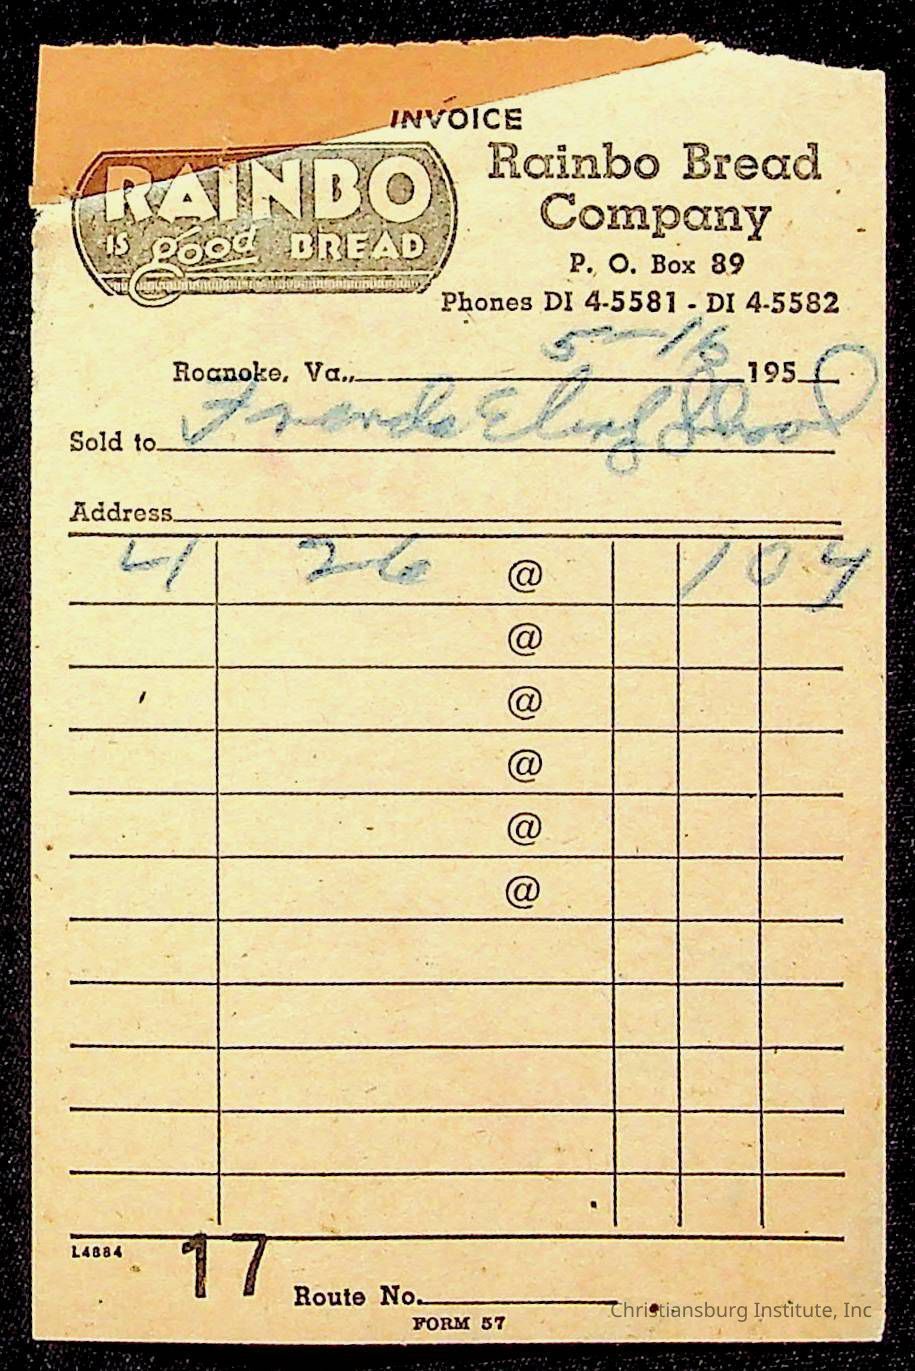 INVOICE
RAINBO
IS good BREAD
Rainbo Bread
Company
P. O. Box 89
Phones DI 4-5581 - DI 4-5582
Roanoke, Va., 5-16 195
Sold to
Address
4 26 @ 1 04
@
@
@
@
@
L4884
17
Route No.
FORM 57
Christiansburg Institute, Inc